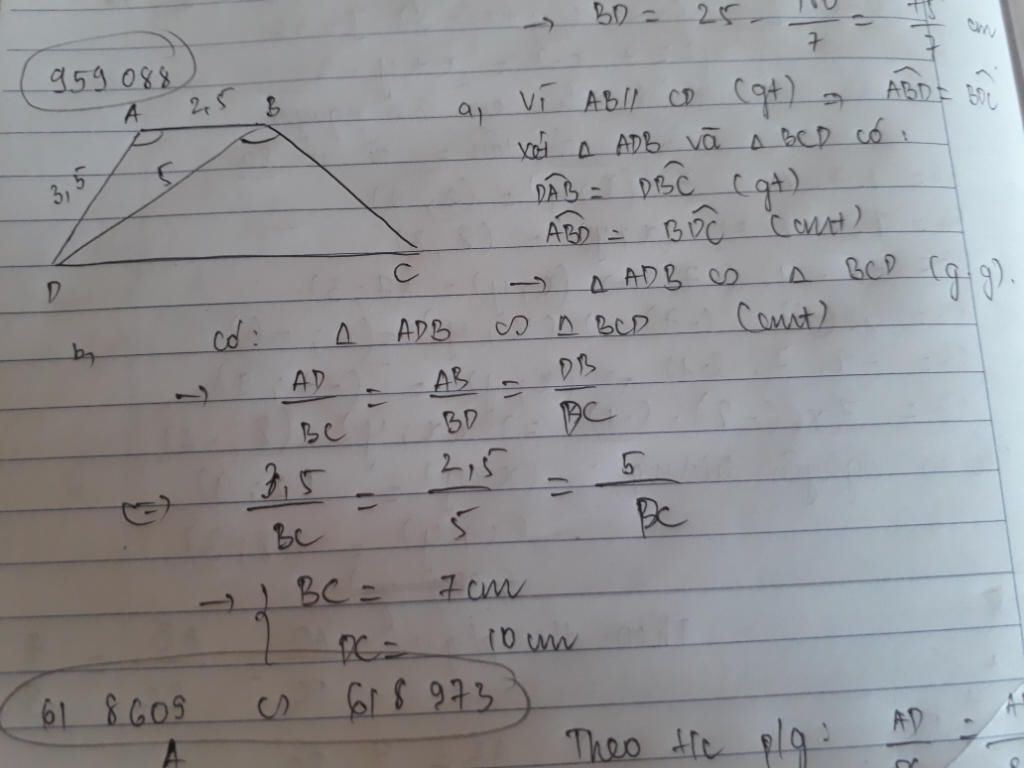 → BD = 25 - 100/7 = 75/7 cm
959 088
A 2,5 B
3,5 5
D C
a, Vì AB // CD (gt) ⇒ ABD^ = BDC^
xét Δ ADB và Δ BCD có:
DAB^ = DBC^ (gt)
ABD^ = BDC^ (cmt)
→ Δ ADB ∽ Δ BCD (g.g).
b, có: Δ ADB ∽ Δ BCD (cmt)
→ AD/BC = AB/BD = DB/DC
⇔ 3,5/BC = 2,5/5 = 5/DC
→ { BC = 7cm
DC = 10 cm
61 8609 ∽ 618 973
A
Theo t/c p/g: AD/DC =